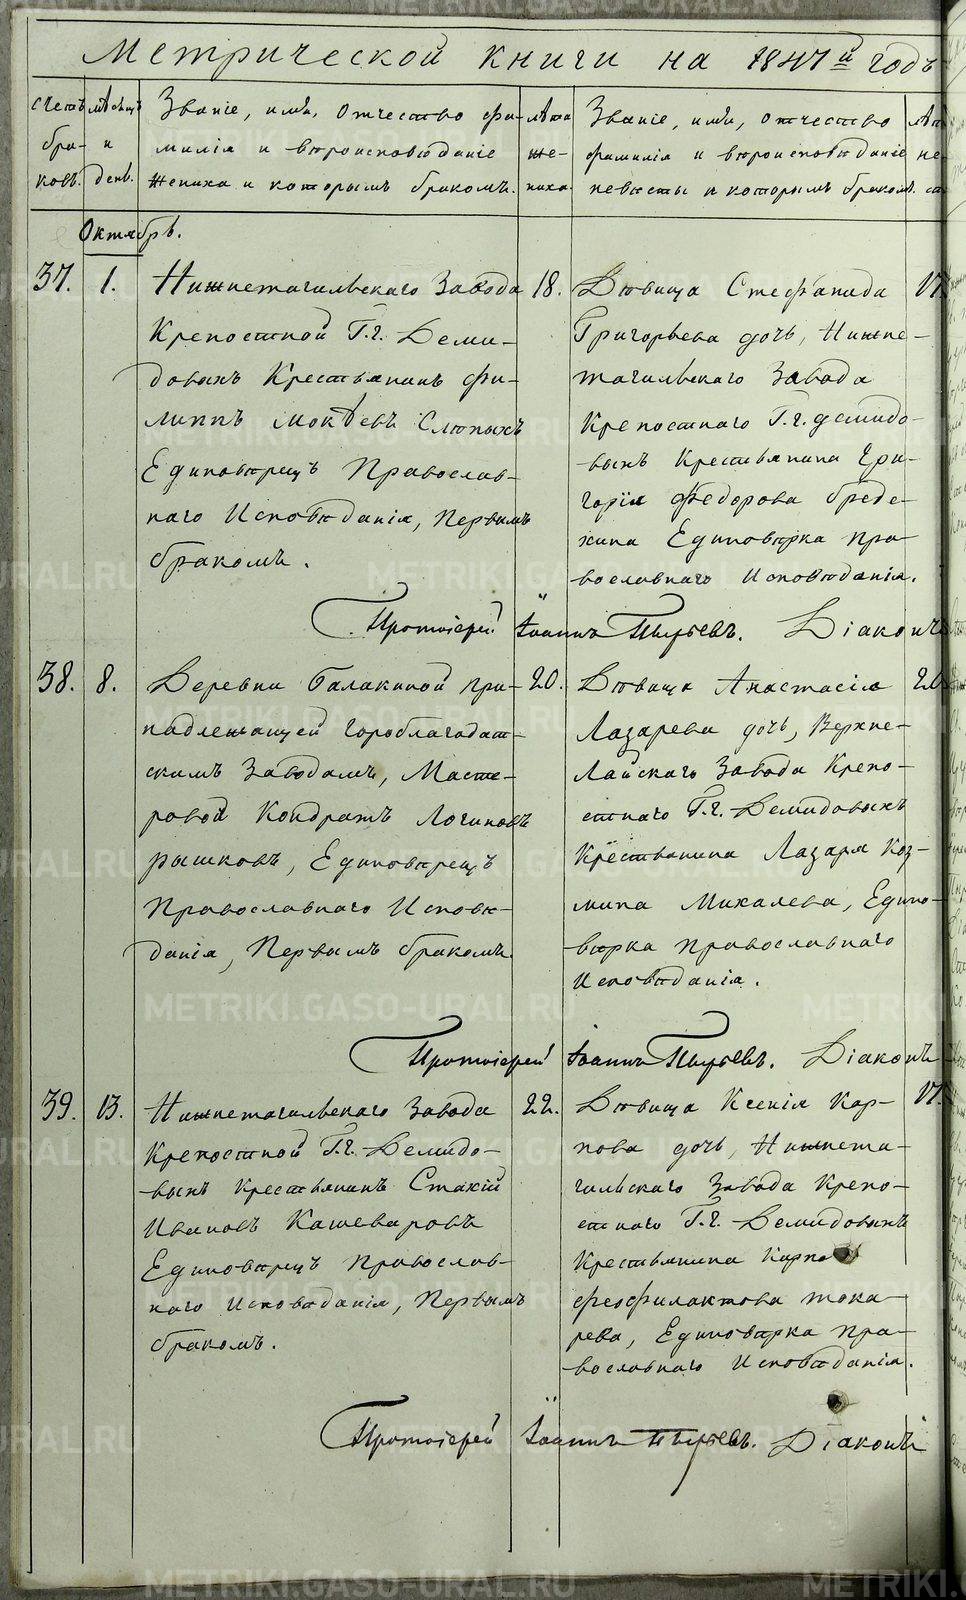 Метрической книги на 1847й годъ
счетъ бра- ковъ.
мѣсяцъ и день.
Званіе, имя, отчество фа-
милія и вѣроисповѣданіе
жениха и которымъ бракомъ.
лѣта
же-
ниха
Званіе, имя, отчество
фамилія и вѣроисповѣданіе
невѣсты и которымъ бракомъ.
лѣт
не-
Октябрь.
37. 1.
Нижнетагильскаго Завода
Крепостной Г.г. Деми-
довыхъ Крестьянинъ Фи-
липпъ Мокѣевъ Слѣпыхъ
Единовѣрецъ Православ-
наго Исповѣданія, Первымъ
бракомъ.
18.
Дѣвица Стефанида
Григорьева дочь, Нижне-
тагильскаго Завода
Крепостнаго Г.г. демидо-
выхъ Крестьянина Гри-
горія Федорова бреде-
хина Единовѣрка пра-
вославнаго исповѣданія.
17.
Протоіерей Іоаннъ Пырьевъ. Діаконъ
38. 8.
Деревни Балакиной при-
надлежащей Гороблагодат-
скимъ Заводамъ, Масте-
ровой Кондратъ Логиновъ
рышковъ, Единовѣрецъ
Православнаго Исповѣ-
данія, Первымъ бракомъ.
20.
Дѣвица Анастасія
Лазарева дочь, Верхне-
Лайскаго Завода Крепо-
стнаго Г.г. Демидовыхъ
Крестьянина Лазаря Коз-
мина Михалева, Едино-
вѣрка православнаго
Исповѣданія.
20
Протоіерей Іоаннъ Пырьевъ. Діаконъ
39. 13.
Нижнетагильскаго Завода
Крепостной Г.г. Демидо-
выхъ Крестьянинъ Стахій
Ивановъ Кашеваровъ
Единовѣрецъ Православ-
наго исповѣданія, Первымъ
бракомъ.
22.
Дѣвица Ксенія Кар-
пова дочь, Нижнета-
гильскаго Завода Крепо-
стнаго Г.г. Демидовыхъ
Крестьянина Карпа
Феофилактова тока-
рева, Единовѣрка пра-
вославнаго Исповѣданія.
17.
Протоіерей Іоаннъ Пырьевъ. Діаконъ
METRIKI.GASO-URAL.RU